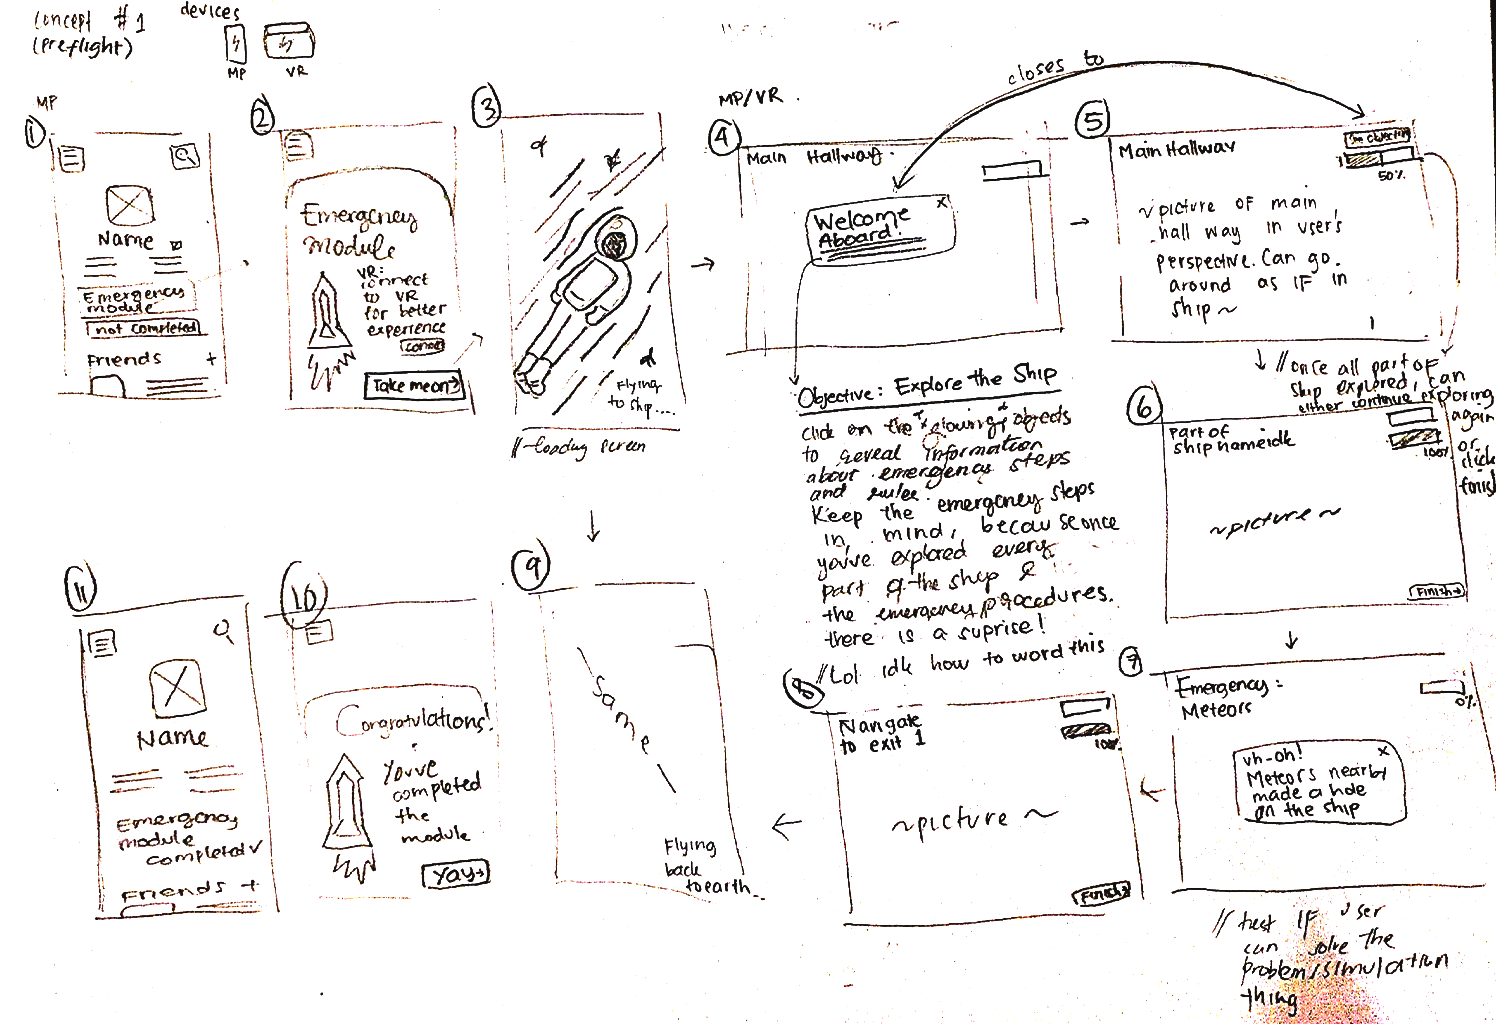 concept #1
(preflight)
devices
MP
VR
MP
1
Name
Emergency
module
not completed
Friends +
2
Emergency
Module
VR:
connect
to VR
for better
experience
Take me on→
3
Flying
to ship....
//-loading screen
MP/VR.
4
Main Hallway.
Welcome
Aboard!
x
closes to
Objective: Explore the Ship
click on the *glowing* objects
to reveal information
about emergency steps
and rules.
Keep the emergency steps
in mind, because once
you've explored every
part of the ship &
the emergency procedures.
there is a suprise!
//Lol idk how to word this
5
Main Hallway
50%
~picture of main
hall way in user's
perspective. Can go
around as IF in
ship~
//once all part of
ship explored, can
either continue exploring
again
or
click
finish
6
Part of
ship name idk
100%
~picture~
Finish→
7
Emergency:
Meteors
0%
uh-oh!
x
Meteors nearby
made a hole
on the ship
// test IF user
can solve the
problem/simulation
thing
8
Navigate
to exit 1
100%
~picture~
Finish→
9
same
Flying
back
to earth...
10
Congratulations!
You've
completed
the
module
Yay→
11
Name
Emergency
module
completed✓
Friends +